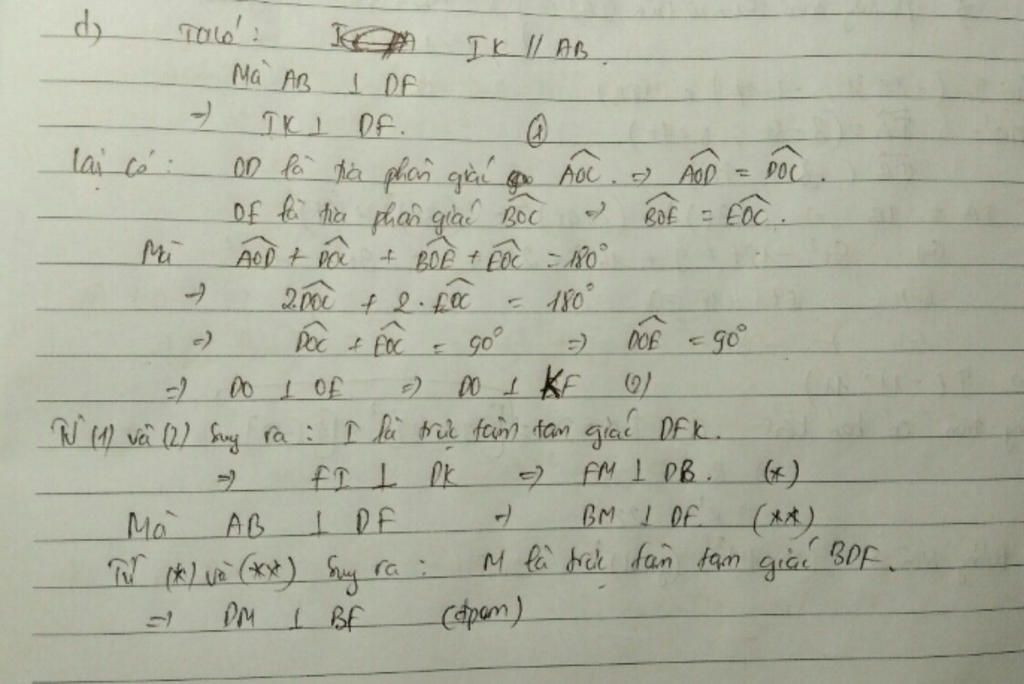 d) Ta có: IK // AB.
Mà AB ⊥ DF
⇒ IK ⊥ DF. (1)
Lại có: OD là tia phân giác \widehat{AOC}. ⇒ \widehat{AOD} = \widehat{DOC}.
OE là tia phân giác \widehat{BOC} ⇒ \widehat{BOE} = \widehat{EOC}.
Mà \widehat{AOD} + \widehat{DOC} + \widehat{BOE} + \widehat{EOC} = 180°
⇒ 2\widehat{DOC} + 2.\widehat{EOC} = 180°
⇒ \widehat{DOC} + \widehat{EOC} = 90° ⇒ \widehat{DOE} = 90°
⇒ DO ⊥ OE ⇒ DO ⊥ KF (2)
Từ (1) và (2) suy ra: I là trực tâm tam giác DFK.
⇒ FI ⊥ DK ⇒ FM ⊥ DB. (*)
Mà AB ⊥ DF ⇒ BM ⊥ DF (**)
Từ (*) và (**) suy ra: M là trực tâm tam giác BDF.
⇒ DM ⊥ BF (đpcm)